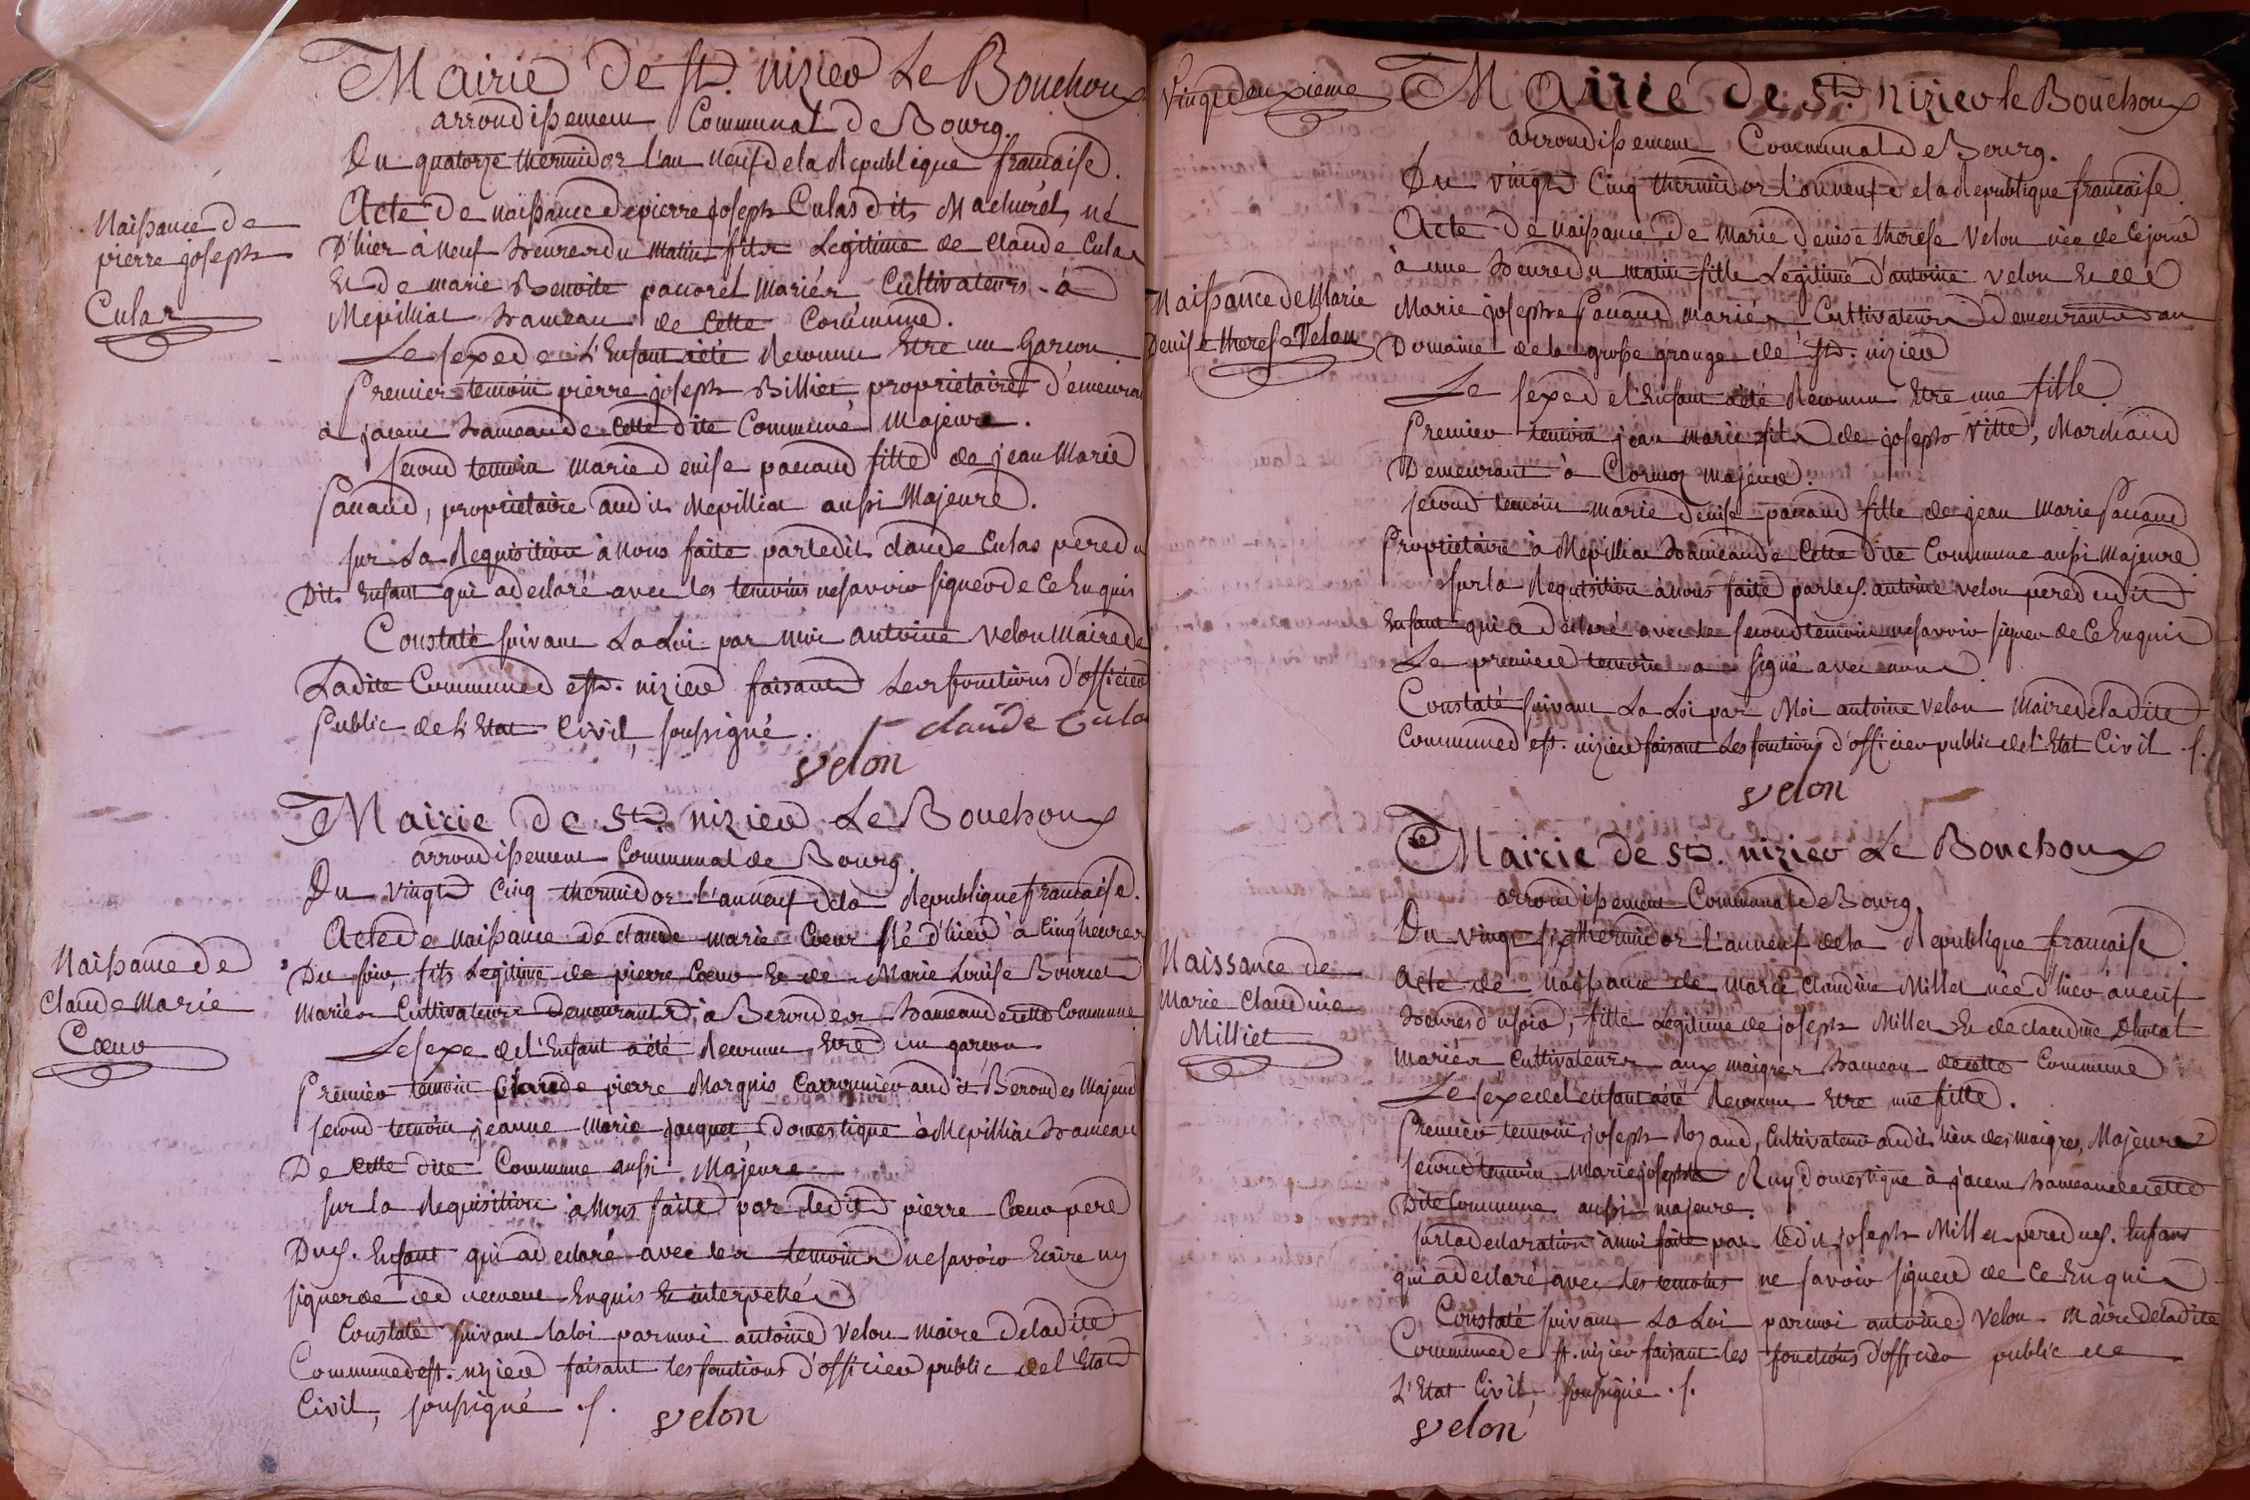 Mairie de St. nizier Le Bouchoux
arrondissement Communal de Bourg.
Du quatorze thermidor l'an neuf de la Republique francaise.
Naissance de
pierre joseph
Culas
Acte de naissance de pierre joseph Culas dit Mathurel, né
D'hier à neuf heures du matin fils Legitime de Claude Culas
Et de marie Benoite pauorel mariés, Cultivateurs à
Mepilliat hameau de Cette Commune.
Le sexe de L'Enfant a été Reconnu Etre un Garcon.
Premier temoin pierre joseph Billiet proprietaire d'emeuran
a jacem hameau de Cette dite Commune Majeur.
second temoin marie denise pacaud fille de jean Marie
Pacaud, proprietaire audit Mepilliat aussi Majeure.
sur La Requisition à Nous faite par ledit claude Culas pere du
Dit Enfant qui a declaré avec les temoins ne savoir signer de Ce Enquis
Constaté suivant La Loi par moi antoine velon Maire de
Ladite Commune de st. nizier faisant Les fonctions d'officier
Public de L'Etat Civil, soussigné.
claude Cula
velon
Mairie de St. nizier Le Bouchoux
arrondissement Communal de Bourg.
Du vingt Cinq thermidor l'an neuf de la Republique francaise.
Naissance de
Claude Marie
Cœur
Acte de naissance de claude marie Cœur Né d'hier à Cinq heures
Du soir, fils Legitime de pierre Cœur Et de Marie Louise Bourcet
mariés Cultivateurs Demeurants à Beroudes hameau de cette Commune
Le sexe de l'Enfant a été Reconnu Etre un garcon
Premier temoin Claude pierre Marquis Carronnier audit Beroudes Majeur
second temoin jeanne Marie jacquet, Domestique à Mepilliat hameau
De Cette dite Commune aussi Majeure
sur la Requisition à Nous faite par ledit pierre Cœur pere
Dud. Enfant qui a declaré avec les temoins ne savoir Ecrire ny
signer de ce Enquis Et interpellés
Constaté suivant la loi par moi antoine velon maire de ladite
Commune de st. nizier faisant les fonctions d'officier public de l'Etat
Civil, soussigné .
velon
Vingt deuxieme
Mairie de St. nizier le Bouchoux
arrondissement Communal de Bourg.
Du vingt Cinq thermidor l'an neuf de la Republique francaise.
Naissance de Marie
Denise therese Velon
Acte de Naissance de Marie Denise therese Velon née de Ce jour
à une heure du matin fille Legitime d'antoine velon Et de
Marie josephe Pacaud mariés Cultivateurs Demeurants au
Domaine de la grosse grange de St. nizier
Le sexe de l'Enfant a été Reconnu Etre une fille.
Premier temoin jean marie fils de joseph Vitte, Marchand
Demeurant à Cormoz majeur.
second temoin marie denise pacaud fille de jean Marie Pacaud
Proprietaire à Mepilliat hameau de Cette dite Commune aussi Majeure
sur la Requisition à Nous faite par led. antoine velon pere dudit
Enfant qui a declaré avec le second temoin ne savoir signer de Ce Enquis
Le premier temoin a signé avec nous
Constaté suivant La Loi par Moi antoine velon Maire de ladite
Commune de st. nizier faisant Les fonctions d'officier public de l'Etat Civil .
velon
Mairie de St. nizier Le Bouchoux
arrondissement Communal de Bourg.
Du vingt six thermidor l'an neuf de la Republique francaise.
Naissance de
Marie Claudine
Milliet
Acte de Naissance de Marie Claudine Millet née d'hier à neuf
heures du soir, fille Legitime de joseph Millet Et de Claudine
mariés, Cultivateurs aux maigres hameau de cette Commune
Le sexe de l'enfant a été Reconnu Etre une fille.
Premier temoin joseph Rozand, Cultivateur audit lieu des maigres, Majeur
second temoin marie josephte Ruy Domestique à jacem hameau de cette
Dite Commune aussi majeure.
sur la declaration à moi faite par ledit joseph Millet pere dud. Enfant
qui a declaré avec les temoins ne savoir signer de Ce Enquis
Constaté suivant La Loi par moi antoine Velon Maire de ladite
Commune de st. nizier faisant les fonctions d'officier public de
L'Etat Civil, soussigné .
velon